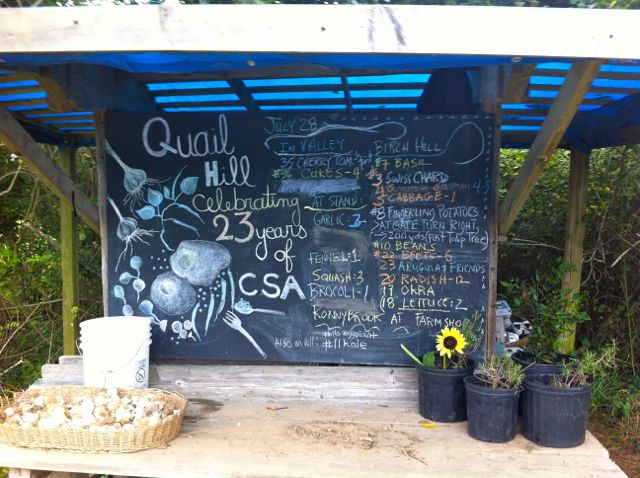 Quail
Hill
Celebrating
23 years
of
CSA
JULY 28
IN VALLEY
35 CHERRY TOM.
CUKES-4
AT STAND:
GARLIC:
FENNEL:1
SQUASH:3
BROCOLI-1
RONNYBROOK AT FARM SHOP
Also on Hill: #11 kale
BIRCH HILL
#7 BASIL
SWISS CHARD
45
CABBAGE-1
#8 FINGERLING POTATOES
→AT GATE TURN RIGHT,
→200 yds (Past Tulip Tree)
#10 BEANS
#22 BEETS-6
23 ARUGULA & FRIENDS
20 RADISH-12
18 LETTUCE:2